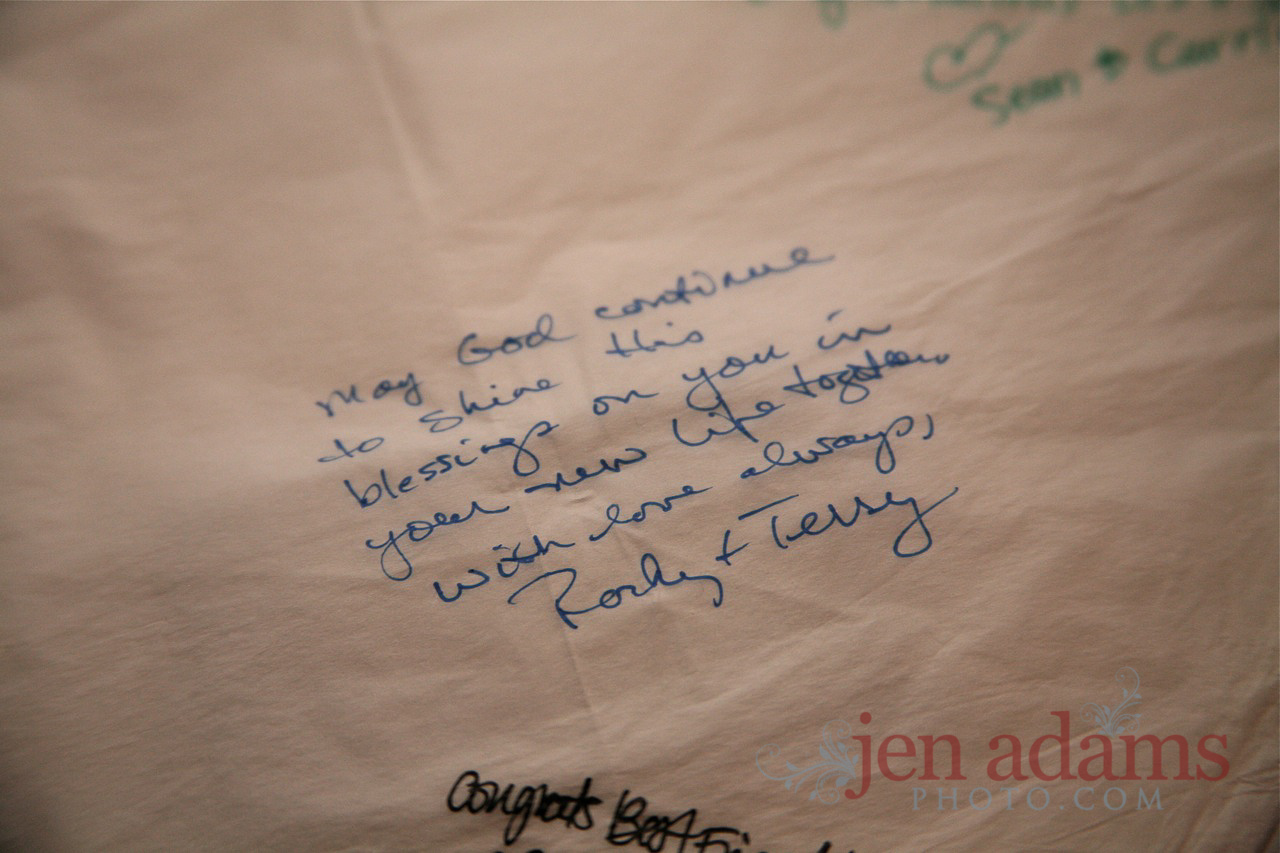 Sean + 
May God continue
to shine this
blessings on you in
your new life together.
with love always,
Rocky + Terry
Congrats Best
jen adams
PHOTO.COM